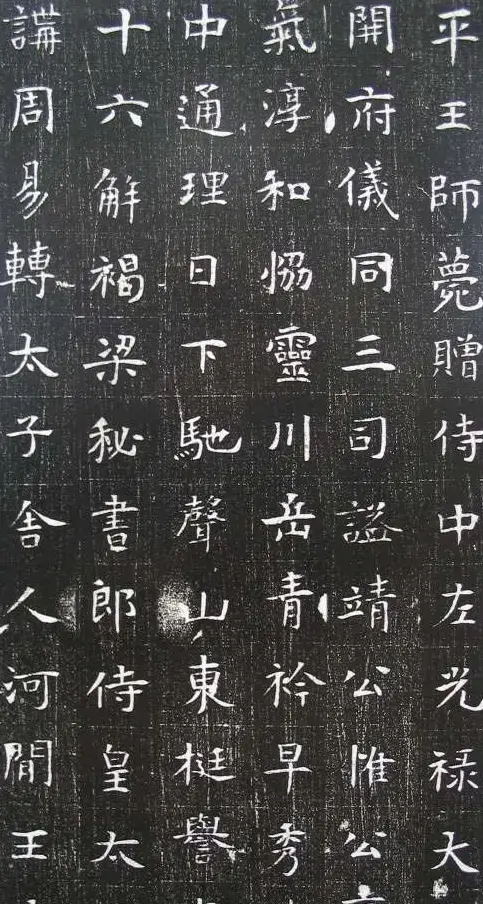 平王師薨贈侍中左光禄大
開府儀同三司謚靖公惟公
氣淳和惱靈川岳青衿早秀
中通理日下馳聲山東挺譽
十六解褐梁秘書郎侍皇太
講周易轉太子舍人河間王